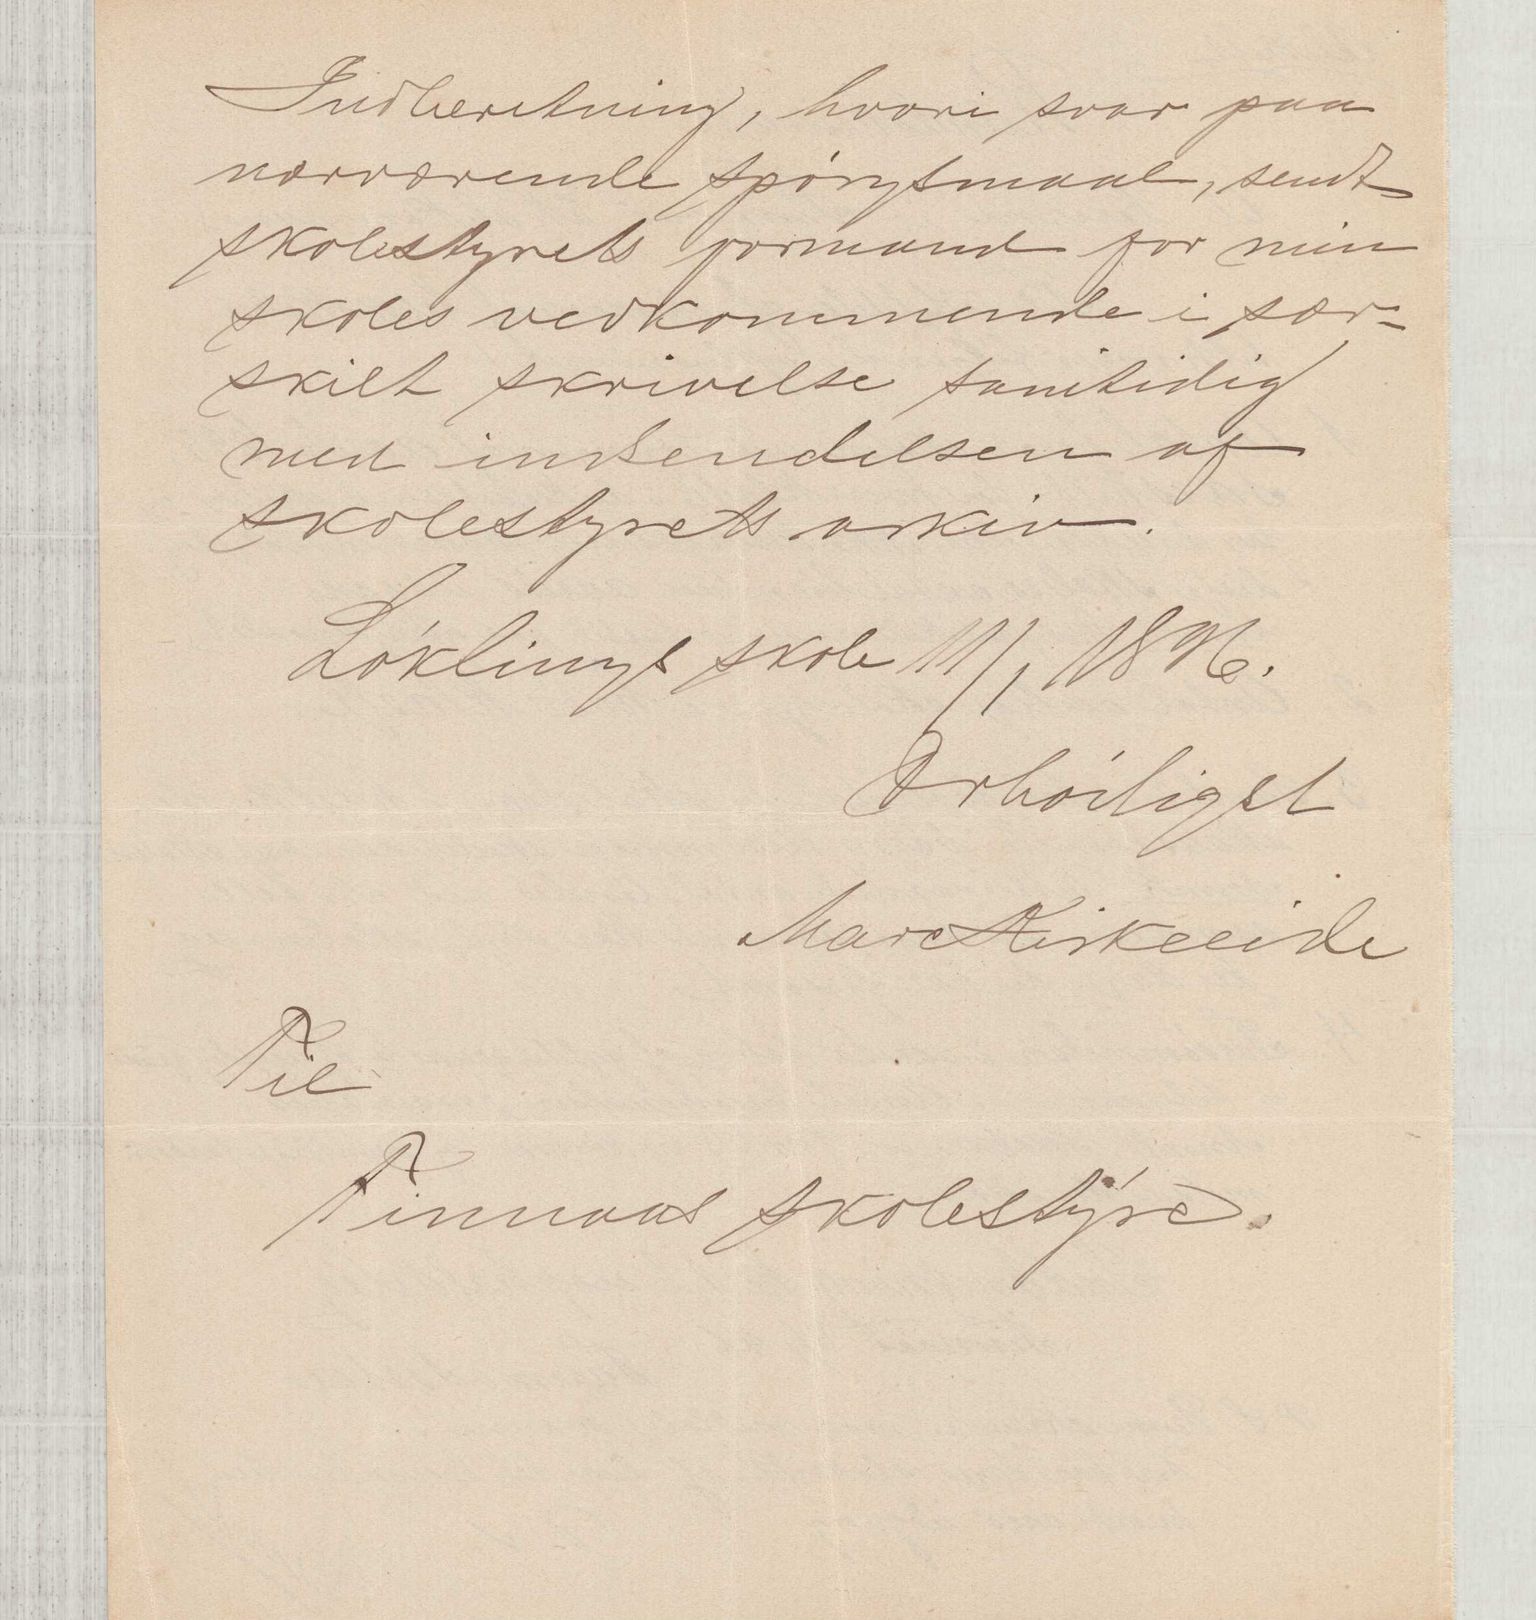 Indberetning, hvori svar paa
nærværende spórgsmaal, sendt
skolestyrets formand for min
skoles vedkommende i sær-
skilt skrivelse samtidig
med indsendelsen af
skolestyrets arkiv.
Lóklings skole 11/1 1896.
Ærbódigst
Mare Kirkeeide
Til
Finnaas skolestýre.